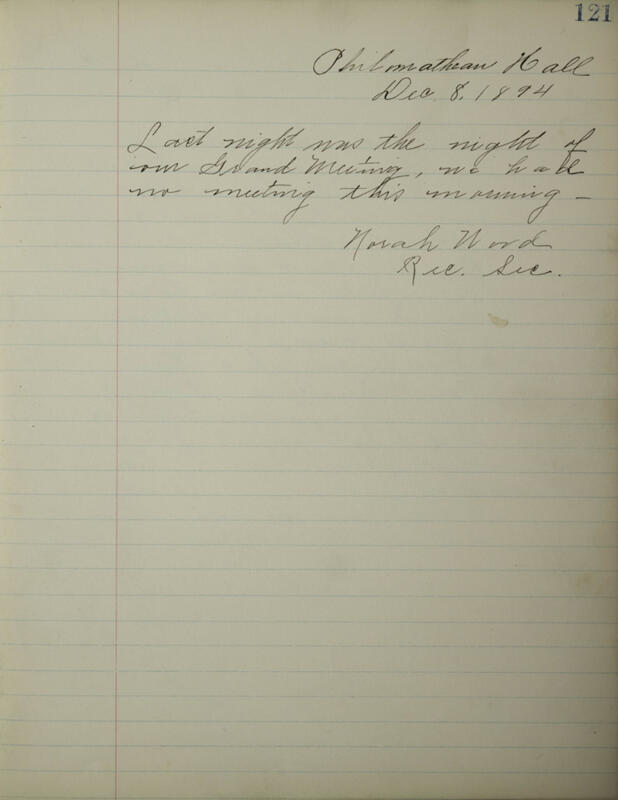 121
Philomathean Hall
Dec 8, 1894
Last night was the night of
our Grand Meeting, we had
no meeting this morning –
Norah Word
Rec. Sec.